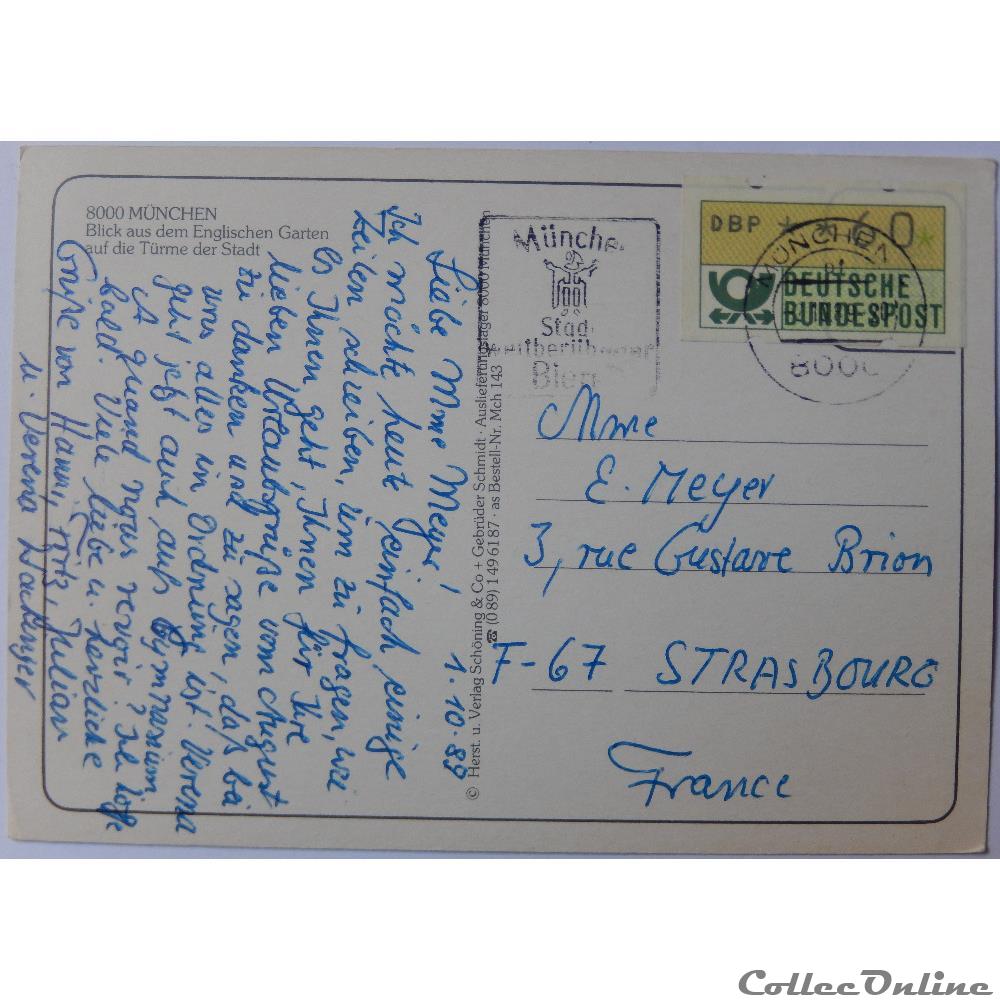 8000 MÜNCHEN
Blick aus dem Englischen Garten
auf die Türme der Stadt
Liebe Mme Meyer! 1.10.89
Ich möchte heute einfach einige
Zeilen schreiben, um zu fragen, wie
es Ihnen geht, Ihnen für Ihre
lieben Urlaubsgrüße vom August
zu danken und zu sagen, daß bei
uns alles in Ordnung ist. Verena
geht jetzt auch aufs Gymnasium.
A quand nous revoir? Ich hoffe
bald. Viele liebe u. herzliche
Grüße von Hanni, Julian
u. Verena
© Herst. u. Verlag Schöning & Co + Gebrüder Schmidt · Auslieferungslager 8000 München
☎ (0 89) 1 49 61 87 · as Bestell-Nr. Mch 143
Münche
Stad
weltberühmter
Bier
DBP * *60*
DEUTSCHE
BUNDESPOST
MÜNCHEN
8000
Mme
E. Meyer
3, rue Gustave Brion
F-67 STRASBOURG
France
CollecOnline